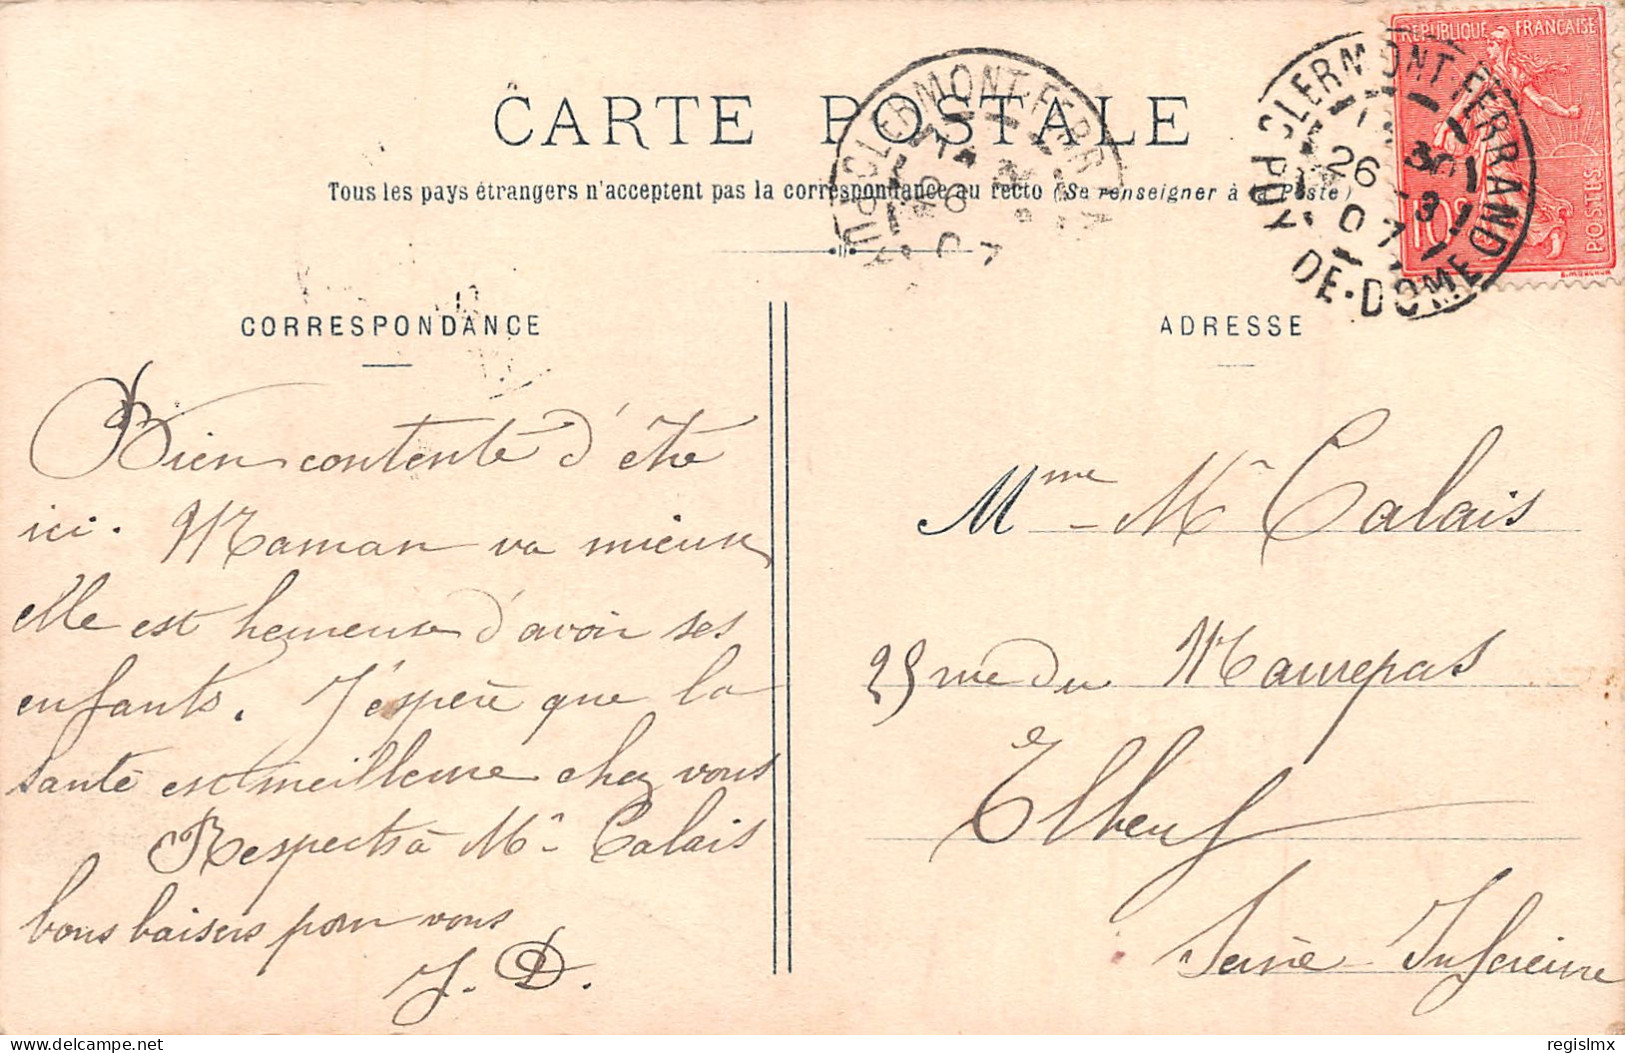 CARTE POSTALE
Tous les pays étrangers n'acceptent pas la correspondance au recto (Se renseigner à la Poste)
REPUBLIQUE FRANÇAISE
10c
POSTES
CLERMONT-FERRAND
PUY-DE-DOME
26 - 3
07
CLERMONT-FERRAND
CORRESPONDANCE
Bien contente d'être
ici. Maman va mieux
elle est heureuse d'avoir ses
enfants. J'espère que la
santé est meilleure chez vous
Respects à Mr Calais
bons baisers pour vous
J. D.
ADRESSE
Mme Mr Calais
25 rue du Maurepas
Elbeuf
Seine Inférieure
delcampe.net
regislmx